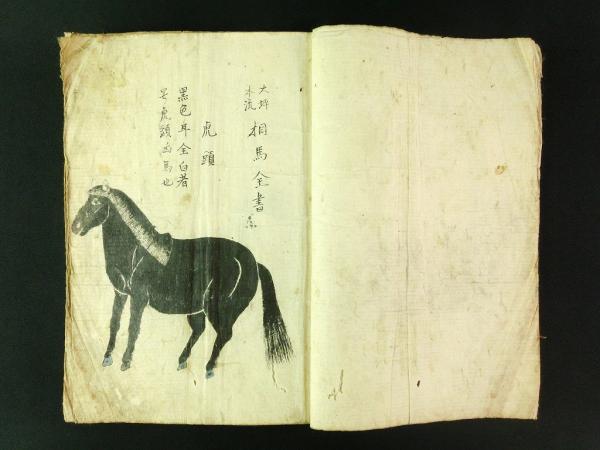 大坪本流 相馬全書
虎頭
黒色耳全白者
是虎頭凶馬也